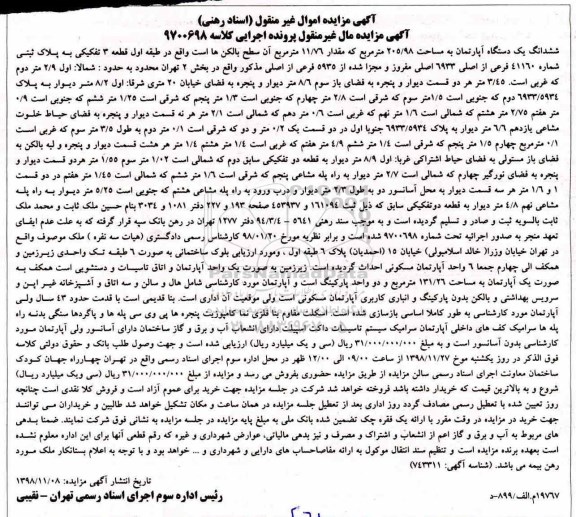 آگهی مزایده اموال غیر منقول (اسناد رهنی)
آگهی مزایده مال غیرمنقول پرونده اجرایی کلاسه ۹۷۰۰۶۹۸
ششدانگ یک دستگاه آپارتمان به مساحت ۲۰۵/۹۸ مترمربع که مقدار ۱۱/۷۶ مترمربع آن سطح بالکن ها است واقع در طبقه اول قطعه ۳ تفکیکی به پلاک ثبتی
شماره ۴۱۱۶۰ فرعی از اصلی ۶۹۳۳ اصلی مفروز و مجزا شده از ۵۹۳۵ فرعی از اصلی مذکور واقع در بخش ۲ تهران محدود به حدود : شمالا: اول ۲/۹ متر دوم
که غربی است. ۳/۴۵ متر هر دو قسمت دیوار و پنجره به فضای باز سوم ۸/۶ متر دیوار و پنجره به فضای خیابان ۲۰ متری شرقا: اول ۸/۲ متر دیوار به پلاک
۶۹۳۳/۵۹۳۴ دوم که جنوبی است ۱/۵متر سوم که شرقی است ۲/۸ متر چهارم که جنوبی است ۱/۳ متر پنجم که شرقی است ۱/۲۵ متر ششم که جنوبی است ۰/۹
متر هفتم ۲/۷۵ متر هشتم که شمالی است ۱/۶ متر نهم که غربی است ۰/۶ متر دهم که شمالی است ۲/۱ متر هر نه قسمت دیوار و پنجره به فضای حیاط خلوت
مشاعی یازدهم ۶/۶ متر دیوار به پلاک ۶۹۳۳/۵۹۳۴ جنوبا اول در دو قسمت یک ۰/۲ متر و دو که شرقی است ۰/۱ متر دوم به طول ۳/۵ متر سوم که غربی است
۰/۱ مترمربع چهارم ۱/۵ متر پنجم که شرقی است ۱/۴ متر ششم ۴/۹ متر هفتم که غربی است ۱/۴ متر هشتم ۱/۴ متر هر هشت قسمت دیوار و پنجره و لبه بالکن به
فضای باز مستولی به فضای حیاط اشتراکی غربا: اول ۸/۹ متر دیوار به قطعه دو تفکیکی سابق دوم که شمالی است ۱/۰۲ متر سوم ۱/۵۵ متر هردو قسمت دیوار و
پنجره به فضای نورگیر چهارم که شمالی است ۲/۷ متر دیوار به راه پله مشاعی پنجم که شرقی است ۱/۶ متر ششم که شمالی است ۱/۴۵ متر هفتم در دو قسمت
۱ و ۱/۶ متر هر سه قسمت دیوار به محل آسانسور دو به طول ۲/۳ متر دیوار و درب ورود به راه پله مشاعی هشتم که جنوبی است ۵/۲۵ متر دیوار به راه پله
مشاعی نهم ۴/۸ متر دیوار به قطعه دوتفکیکی سابق که ذیل ثبت ۱۶۱۰۹۴ و ۴۵۳۹۳۷ صفحه ۱۹۳ و ۲۲۷ دفتر ۱۰۸۱ و ۳۰۳۴ بنام حسین ملک ثابت و محمد ملک
ثابت بالسویه ثبت و صادر و تسلیم گردیده است و به موجب سند رهنی ۵۶۴۱ - ۹۴/۳/۴ دفتر ۱۲۷۷ تهران در رهن بانک سپه قرار گرفته که به علت عدم ایفای
تعهد منجر به صدور اجرائیه تحت شماره ۹۷۰۰۶۹۸ شده است و برابر نظریه مورخ ۹۸/۰۱/۲۰ کارشناس رسمی دادگستری (هیات سه نفره ) ملک موصوف واقع
در تهران خیابان وزرا( خالد اسلامبولی) خیابان ۱۵ (احمدیان) پلاک ۶ طبقه اول ، ومورد ارزیابی بلوک ساختمانی به صورت ۶ طبقه تک واحدی زیرزمین و
همکف الی چهارم جمعا ۶ واحد آپارتمان مسکونی احداث گردیده است. زیرزمین به صورت یک واحد آپارتمان و اتاق تاسیسات و دستشویی است همکف به
صورت یک آپارتمان به مساحت ۱۳۱/۲۶ مترمربع و دو واحد پارکینگ است و آپارتمان مورد کارشناسی شامل هال و سالن و سه اتاق و آشپزخانه غیر اپن و
سرویس بهداشتی و بالکن بدون پارکینگ و انباری کاربری آپارتمان مسکونی است ولی موقعیت آن اداری است. بنا قدیمی است با قدمت حدود ۴۳ سال ولی
آپارتمان مورد کارشناسی به طور کاملا اساسی بازسازی شده است. اسکلت مقاوم بنا فلزی نما کامپوزیت پنجره ها پی وی سی پله ها و پاگردها سنگی بدنه راه
پله ها سرامیک کف های داخلی آپارتمان سرامیک سیستم تاسیسات داکت اسپلیت دارای انشعاب آب و برق و گاز ساختمان دارای آسانسور ولی آپارتمان مورد
کارشناسی بدون آسانسور است و به مبلغ ۳۱/۰۰۰/۰۰۰/۰۰۰ ریال (سی و یک میلیارد ریال) ارزیابی شده است و جهت وصول طلب بانک و حقوق دولتی کلاسه
فوق الذکر در روز یکشنبه مورخ ۱۳۹۸/۱۱/۲۷ از ساعت ۰۹/۰۰ الی ۱۲/۰۰ ظهر در محل اداره سوم اجرای اسناد رسمی واقع در تهران چهارراه جهان کودک
ساختمان معاونت اجرای اسناد رسمی سالن مزایده از طریق مزایده حضوری بفروش می رسد و مزایده از مبلغ ۳۱/۰۰۰/۰۰۰/۰۰۰ ریال (سی ویک میلیارد ریال)
شروع و به بالاترین قیمت که خریدار داشته باشد فروخته خواهد شد شرکت در جلسه مزایده جهت خرید برای عموم آزاد است و فروش کلا نقدی است چنانچه
روز تعیین شده با تعطیل رسمی مصادف گردد روز اداری بعد از تعطیل جلسه مزایده در همان ساعت و مکان تشکیل خواهد شد طالبین و خریداران می توانند
جهت خرید در مزایده در وقت مقرر با ارائه یک فقره چک تضمین شده بانک ملی به مبلغ پایه مزایده در جلسه مزایده به نشانی فوق شرکت نمایند. ضمنا بدهی
های مربوط به آب و برق و گاز اعم از انشعاب و اشتراک و مصرف و نیز بدهی مالیاتی، عوارض شهرداری و غیره که رقم قطعی آنها برای این اداره معلوم نشده
است بعهده برنده مزایده است و تنظیم سند انتقال موکول به ارائه مفاصاحساب های دارایی و شهرداری و ... خواهد بود و با توجه به اعلام بستانکار ملک مورد
رهن بیمه می باشد. (شناسه آگهی: ۷۴۳۳۱۱)
تاریخ انتشار آگهی مزایده: ۱۳۹۸/۱۱/۰۸
رئیس اداره سوم اجرای اسناد رسمی تهران – نقیبی
۱۹۷۶۷م.الف/۸۹۹-د